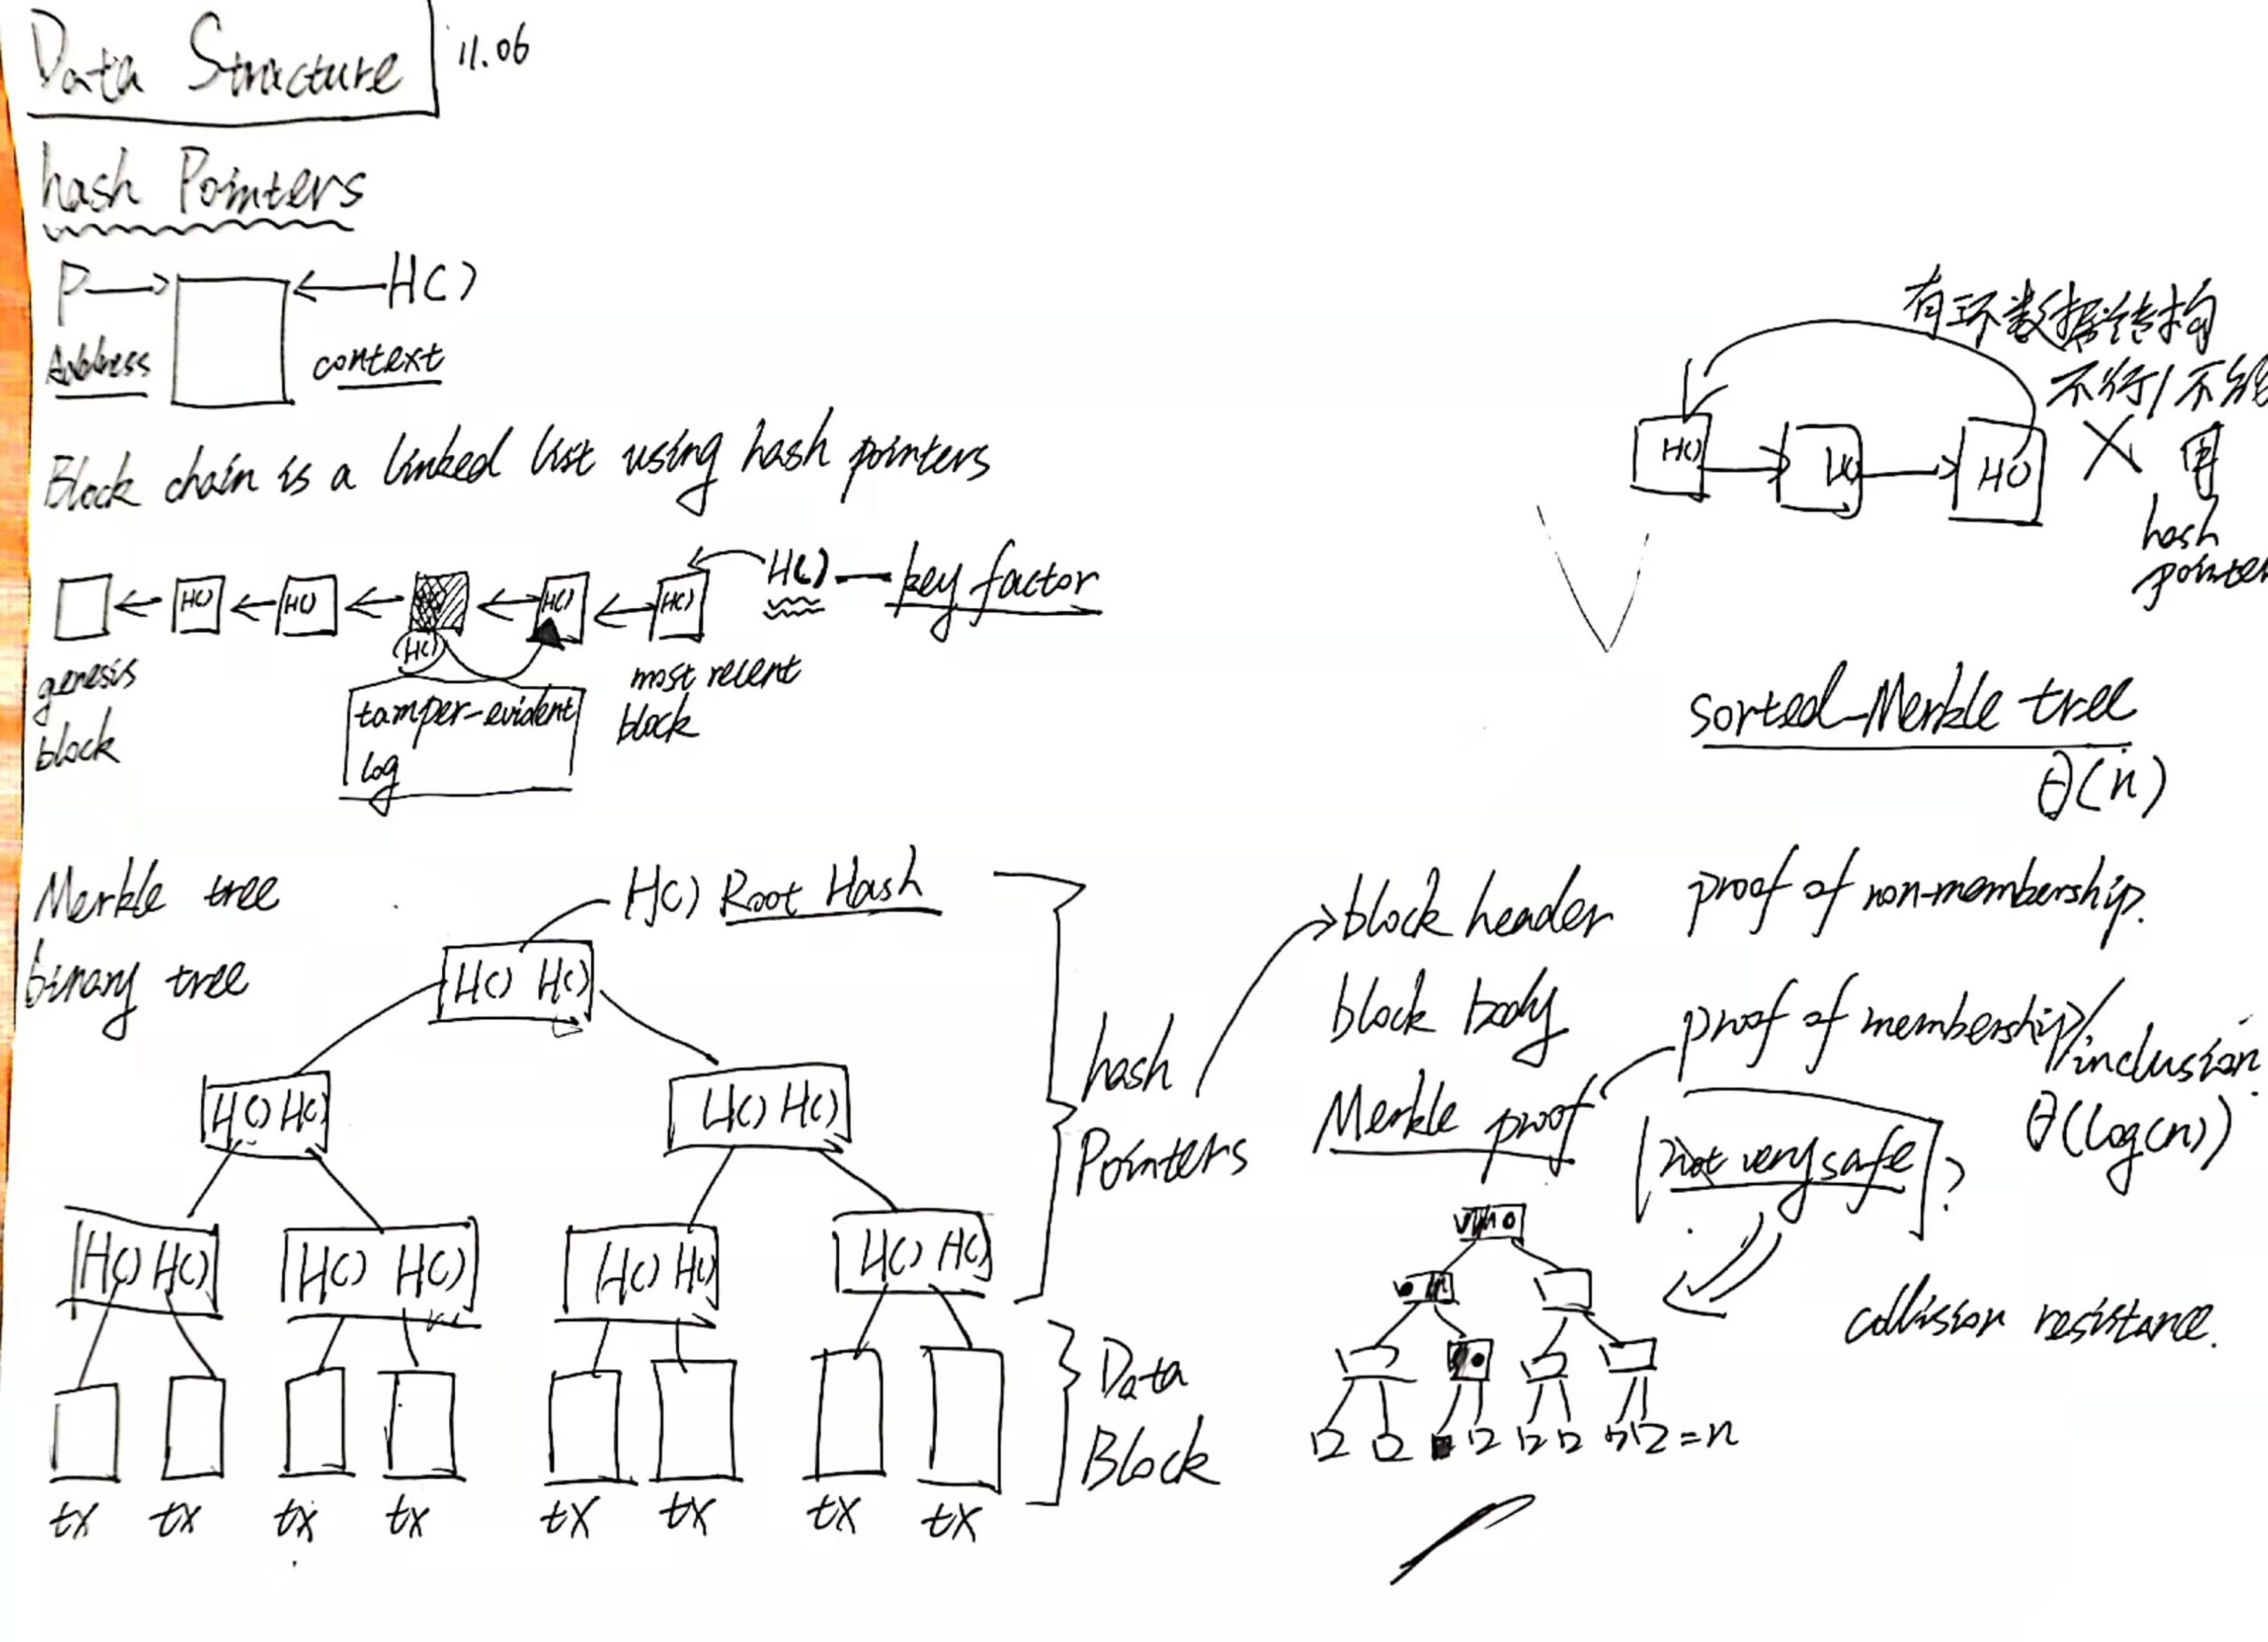 Data Structure
11.06
hash Pointers
P
H()
Address
context
Block chain is a linked list using hash pointers
H()
H()
H()
H()
H()
H()
key factor
genesis
block
tamper-evident
log
most recent
block
有环数据结构
不行/不能
用
H()
H()
H()
hash
pointer
sorted-Merkle tree
θ(n)
Merkle tree
binary tree
H() Root Hash
H() H()
H() H()
H() H()
H() H()
H() H()
H() H()
H() H()
tx tx tx tx tx tx tx tx
hash
Pointers
Data
Block
block header
block body
Merkle proof
proof of non-membership.
proof of membership/
inclusion.
θ(log(n))
not very safe ?
collision resistance.
= n